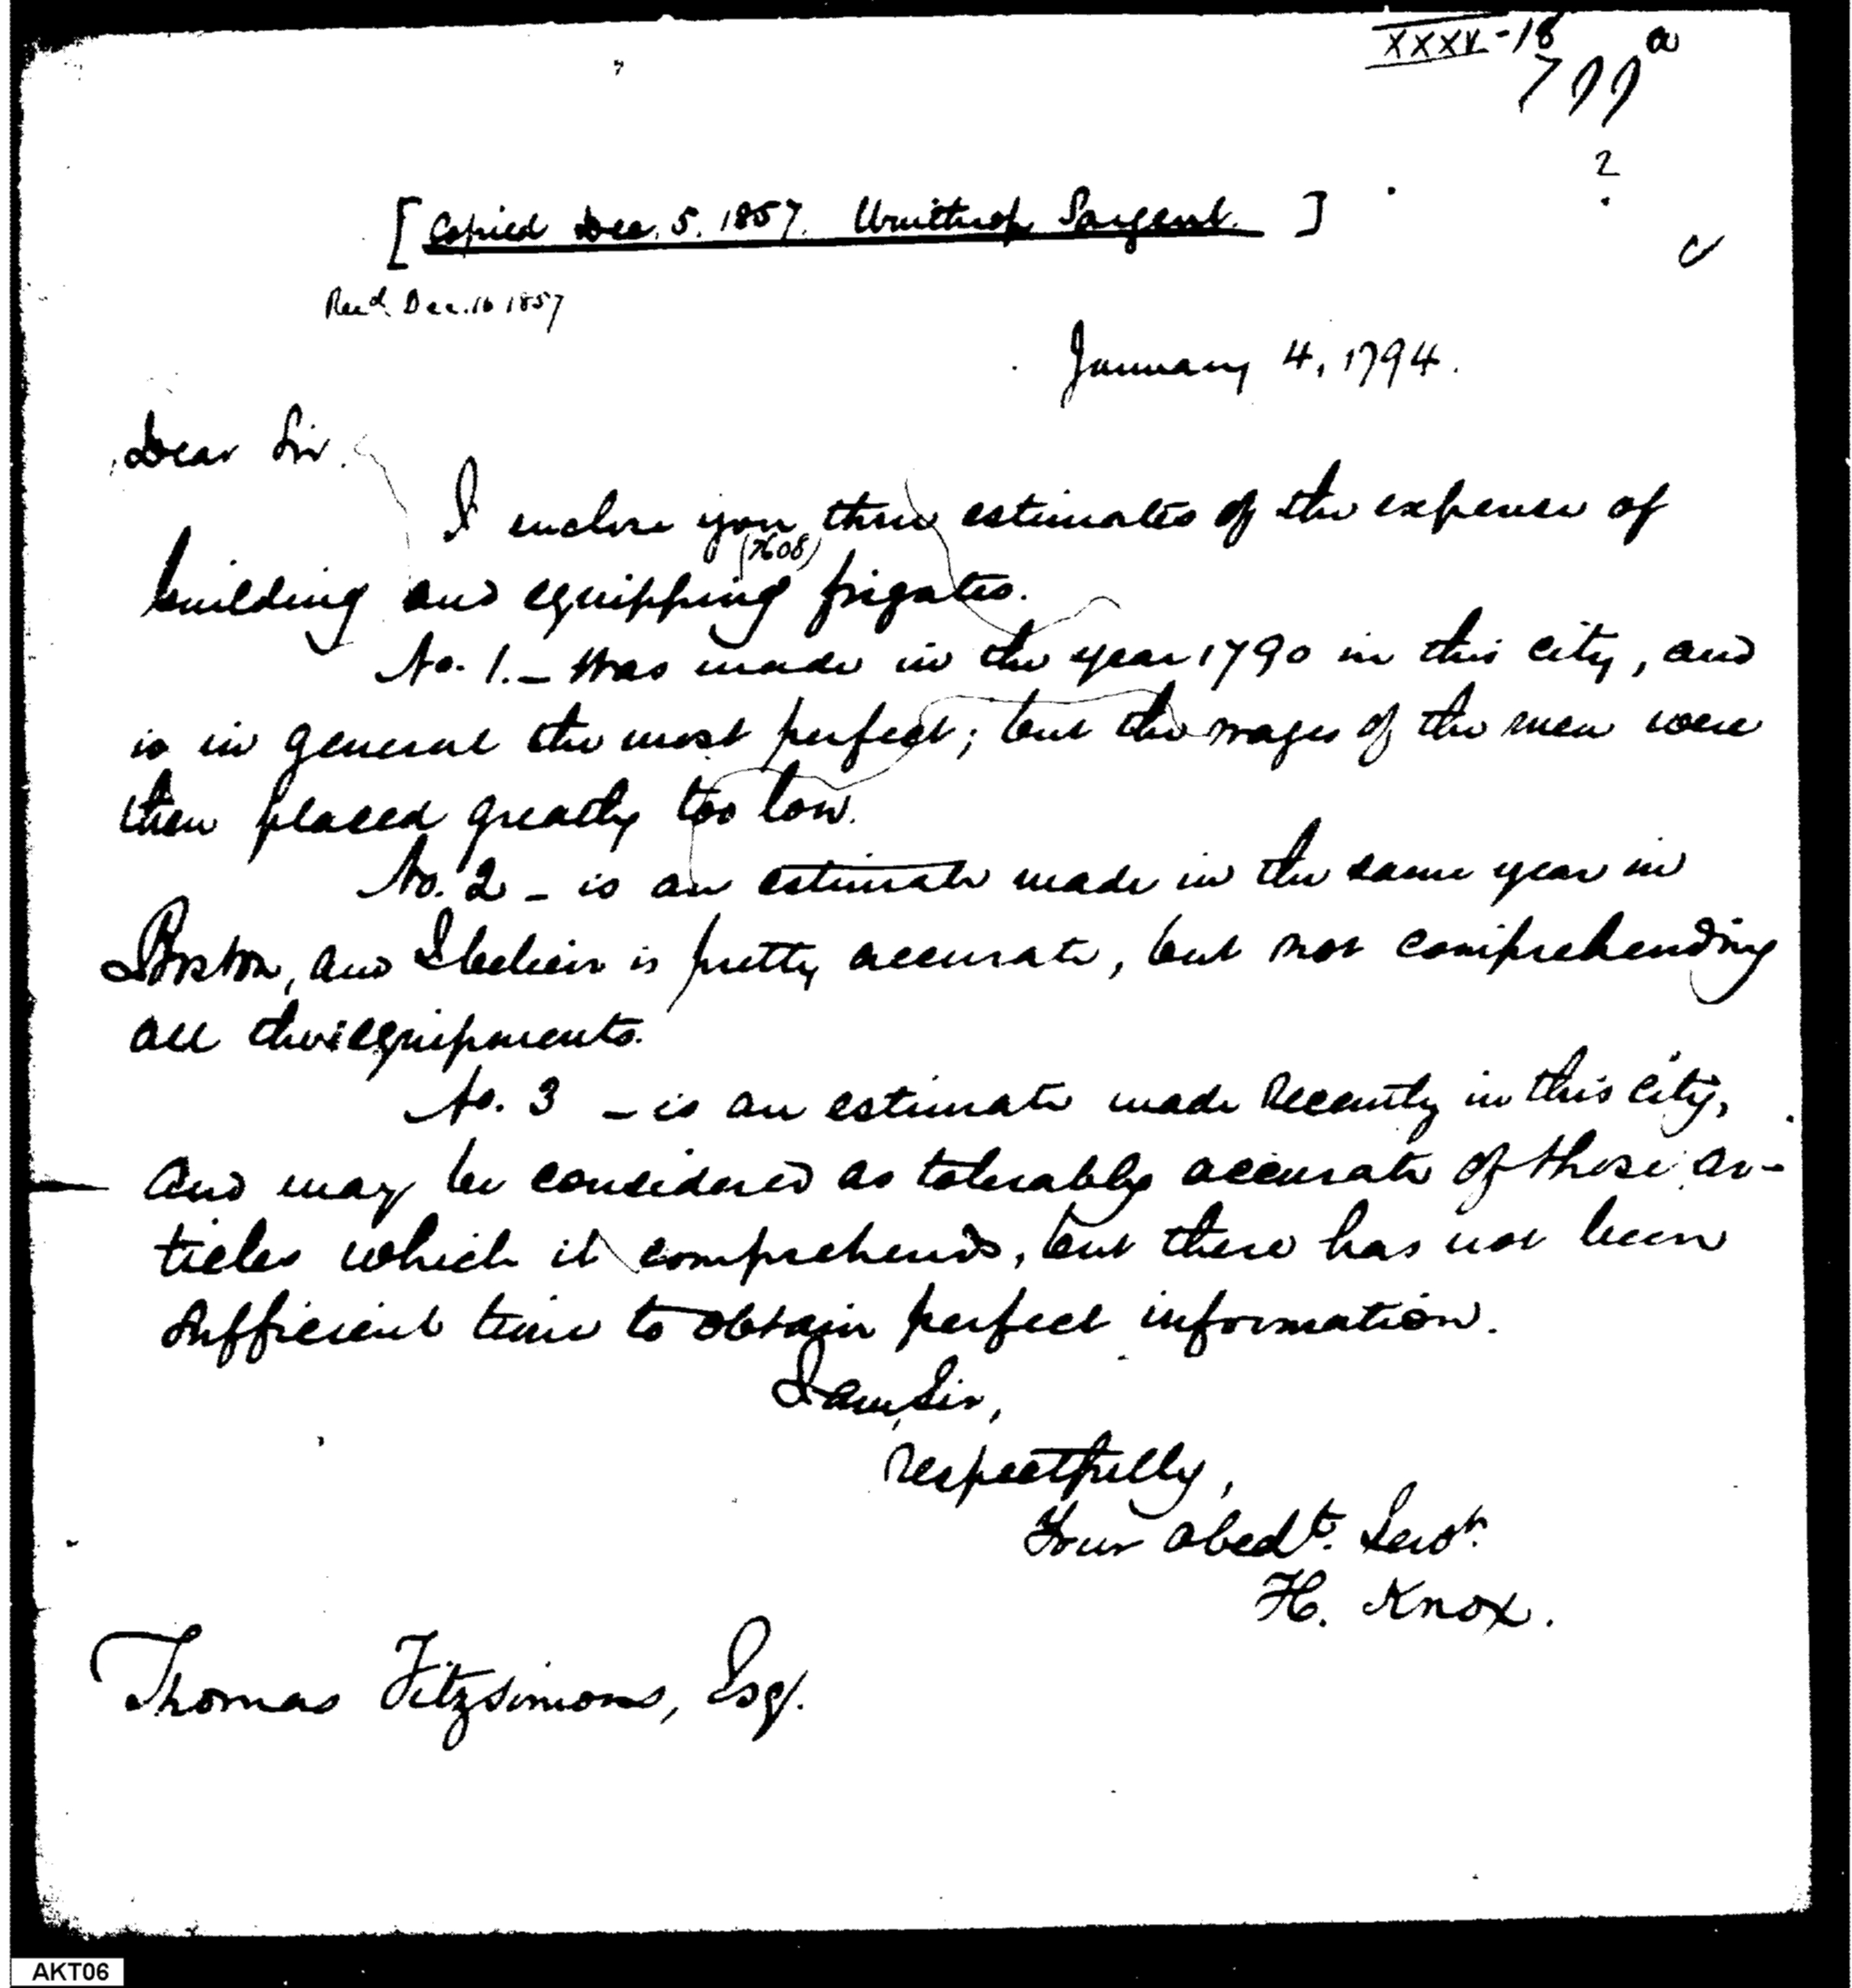 XXXV-18 a
799
2
[Copied Dec. 5. 1857. Winthrop Sargent.]
Recd. Dec. 16 1857
January 4, 1794.
Dear Sir.
I enclose you three estimates of the expense of
building and equipping frigates.
No. 1. - Was made in the year 1790 in this city, and
is in general the most perfect; but the wages of the men were
then placed greatly too low.
No. 2 - is an estimate made in the same year in
Boston, and I believe is pretty accurate, but not comprehending
all the equipments.
No. 3 - is an estimate made recently in this city,
and may be considered as tolerably accurate of those ar-
ticles which it comprehends, but there has not been
sufficient time to obtain perfect information.
I am, Sir,
respectfully,
Your obedt. Servt.
H. Knox.
Thomas Fitzsimons, Esq.
AKT06